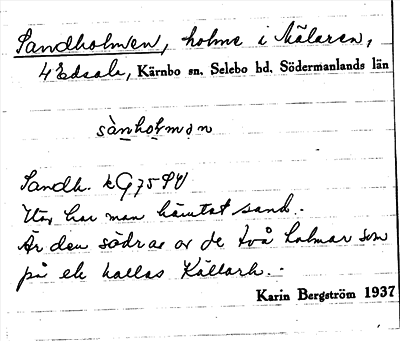 Sandholmen, holme i Mälaren,
4 Edsala, Kärnbo sn, Selebo hd, Södermanlands län
sànholman
Sandh. kG 75 SV
Här har man hämtat sand.
Är den södrae av de två holmar som
på ek kallas Källarh.
Karin Bergström 1937